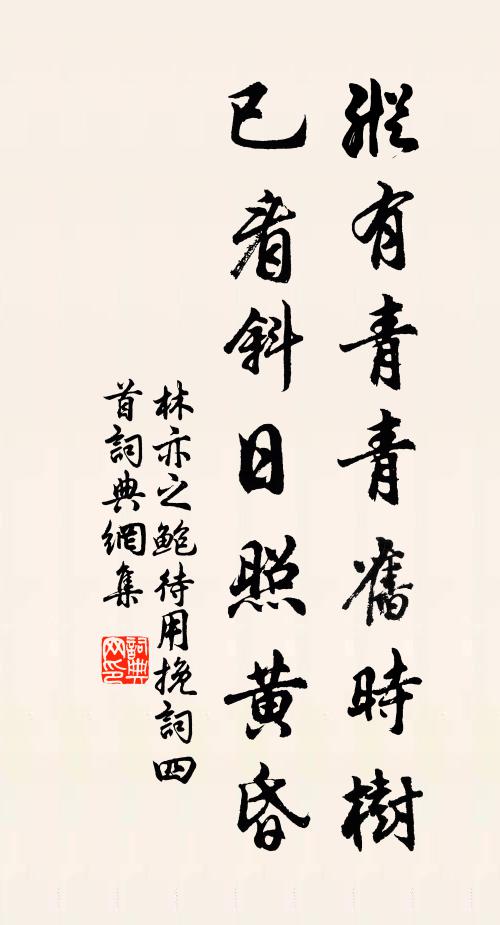 縱有青青舊時樹
已看斜日照黃昏
林亦之鮑待用挽詞四
首詞典網集
詞典
网印